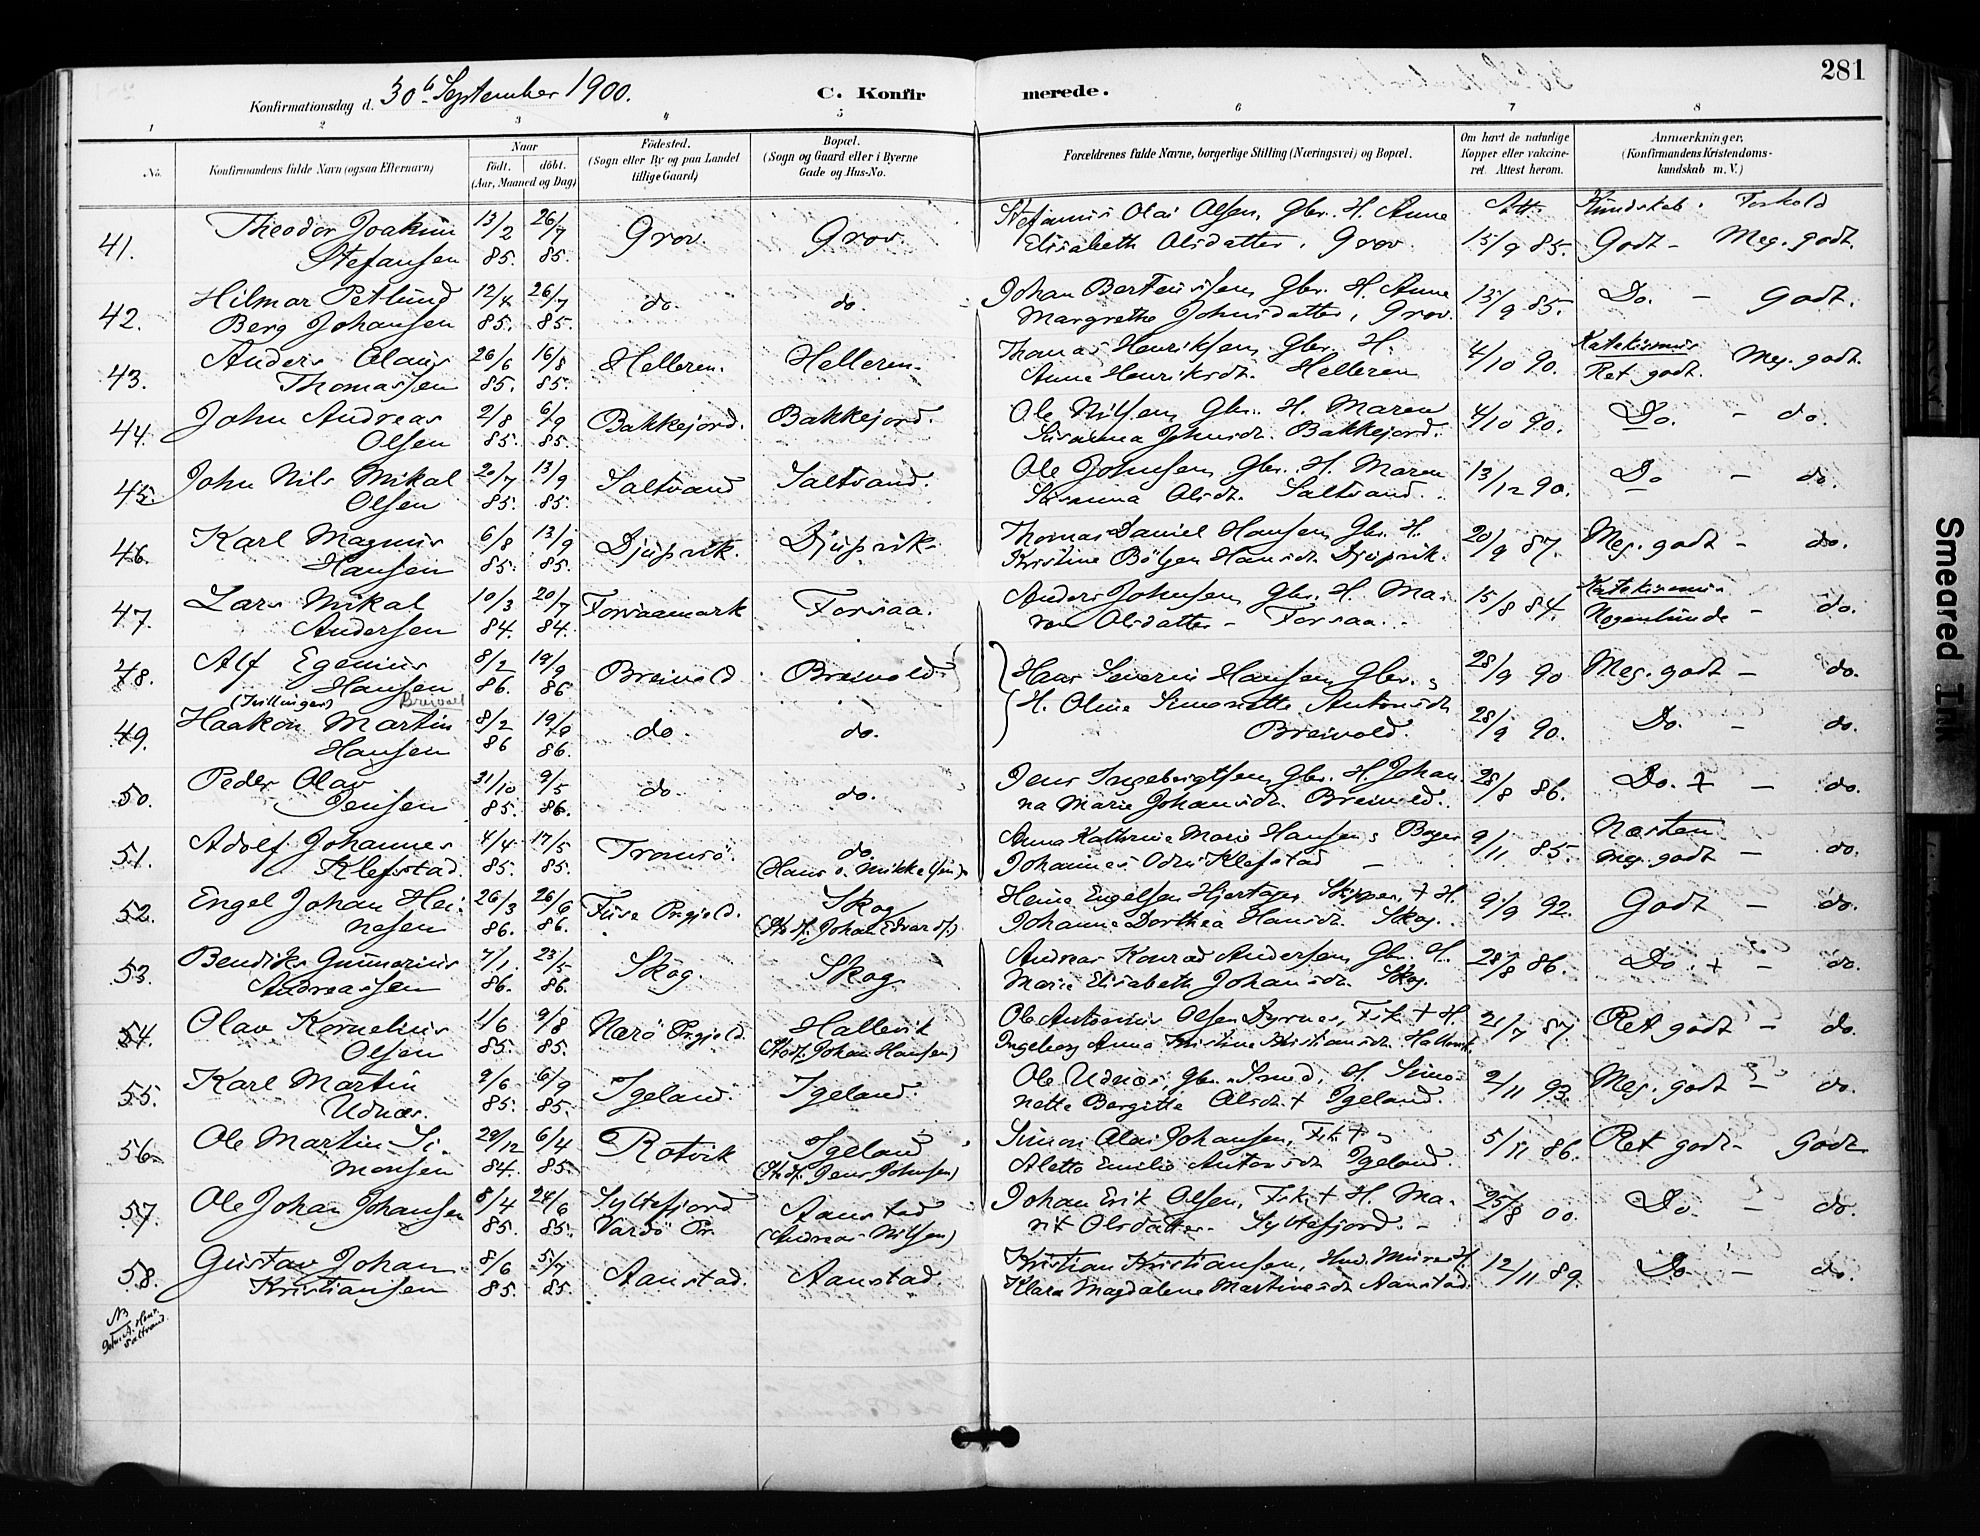 281
Konfirmationsdag d. 30te September 1900.
C. Konfirmerede.
1 2 3 4 5 6 7 8
No.
Konfirmandens fulde Navn (ogsaa Efternavn)
Naar
födt. döbt.
(Aar, Maaned og Dag)
Födested.
(Sogn eller By og paa Landet
tillige Gaard)
Bopæl.
(Sogn og Gaard eller i Byerne
Gade og Hus-No.
Forældrenes fulde Navne, borgerlige Stilling (Næringsvei) og Bopæl.
Om havt de naturlige
Kopper eller vakcine-
ret. Attest herom.
Anmærkninger,
(Konfirmandens Kristendoms-
kundskab m. V.)
Att. Kundskab. Forhold
41. Theodor Joakim 13/2 26/7 Grov. Grov. Stefanus Olai Olsen, Gbr. H. Anne
Stefansen 85. 85. Elisabeth Olsdatter, Grov 15/9 85. Godt - Meg. godt.
42. Hilmar Petlund 12/4 26/7 do. do. Johan Berteussen, Gbr. H. Anne
Berg Johansen 85. 85. Margrethe Johnsdatter, Grov. 15/9 85. Do. - Godt.
43. Anders Olaus 26/6 16/8 Helleren. Helleren. Thomas Henriksen, Gbr. H. Katekismus
Thomassen 85. 85. Anne Henriksdt. Helleren 4/10 90. Ret godt. Meg. godt.
44. John Andreas 2/8 6/9 Bakkejord. Bakkejord. Ole Nilsen, Gbr. H. Maren
Olsen 85. 85. Susanna Johnsdt. Bakkejord. 4/10 90. Do. - do.
45. John Nils Mikal 20/7 13/9 Saltvand Saltvand. Ole Johnsen, Gbr. H. Maren
Olsen 85. 85. Susanna Olsdt. Saltvand. 13/12 90. Do - do.
46. Karl Magnus 6/8 13/9 Djupvik. Djupvik. Thomas Daniel Hansen, Gbr. H.
Hansen 85. 85. Kristine Bölgen Hansdt. Djupvik. 20/9 87. Meg. godt - do.
47. Lars Mikal 10/3 20/7 Forsaamark Forsaa. Anders Johnsen, Gbr. H. Ma- Katekismus
Andersen 84. 84. ren Olsdatter - Forsaa. 15/8 84. Nogenlunde - do.
48. Alf Egenius 8/2 19/9 Breivold Breivold. Haas Severin Hansen, Gbr. 28/9 90 Meg. godt - do.
Hansen 86. 86 H. Oline Simonette Antonsdt
(Tvillinger) Breivoll
49. Haakon Martin 8/2 19/9 do do. Breivold. 28/9 90. Do. - do.
Hansen 86 86.
50. Peder Olav 31/10 9/5 do. do. Jens Ingebrigtsen, Gbr. H. Johan-
Jensen 85. 86. na Marie Johansdt. Breivold. 28/8 86. Do. + - do.
51. Adolf Johannes 4/4 17/5 Tromsö. do. Anna Kathrine Marie Hansen, Næsten
Klefstad. 85. 85. (Hans O. Mikkelsen) Johannes Odin Klefstad - 9/11 85. meg. godt - do.
52. Engel Johan Hei- 26/3 26/6 Fuse Prgjeld. Skog Heine Engelsen Hjertager, Skipper, + H.
nesen 86. 86. (Stedf. Johan Edvardsn) Johanne Dorthea Hansdt. Skog. 9/9 92. Godt - do.
53. Bendiks Gunnerius 7/1 23/5 Skog. Skog. Andreas Konrad Andersen, Gbr. H.
Andreassen 86. 86. Marie Elisabeth Johansdt. Skog. 28/8 86. Do. + - do.
54. Olav Kornelius 1/6 9/8 Nærö Prgjeld. Hallevik Ole Antonius Olsen Dyrnes, Fisk. + H.
Olsen 85. 85. (Stedf. Johan Hansen) Ingeborg Anna Kristine Kristiansdt. Hallevik. 21/7 87. Ret godt - do.
55. Karl Martin 9/6 6/9 Igeland. Igeland. Ole Udnæs, Gbr. Smed, H. Simo-
Udnæs. 85. 85. nette Bergitte Olsdt. + Igeland. 2/11 93. Meg. godt - do.
56. Ole Martin Si- 29/12 6/4 Rotvik Igeland Simon Olai Johansen, Fisk. +
monsen 84. 85. (Stedf. Jens Johnsen) Aletta Emilie Antonsdt Igeland. 5/11 86. Ret godt - Godt
57. Ole Johan Johansen 8/4 24/6 Syltefjord Aanstad Johan Erik Olsen, Fisk. + H. Ma-
85. 85. Vardö Pr. (Andreas Nilsen) rit Olsdatter. Syltefjord. - 25/8 00. Do. - do.
58. Gustav Johan 8/6 5/7 Aanstad. Aanstad. Kristian Kristiansen, Hmd. Murer H.
Kristiansen 85. 85. Klara Magdalene Martinsdt Aanstad. 12/11 89. Do - do.
NB
Saltvand.
Smeared Ink